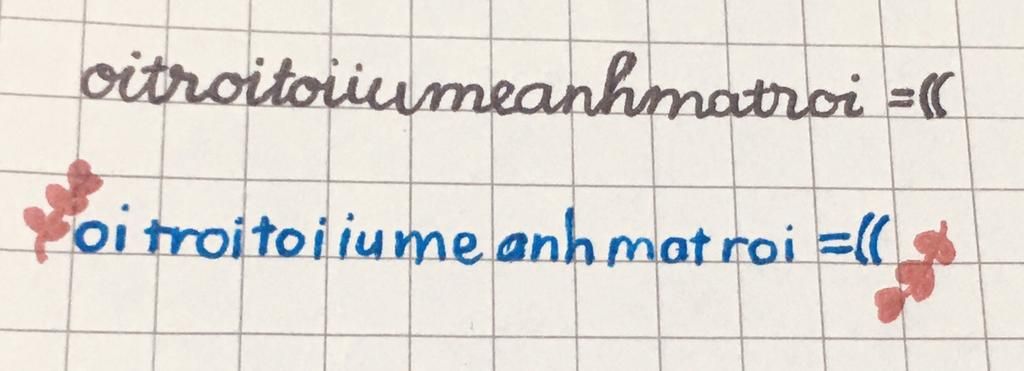 oitroitoiiumeanhmatroi =((
oi troi toi iu me anh mat roi =((